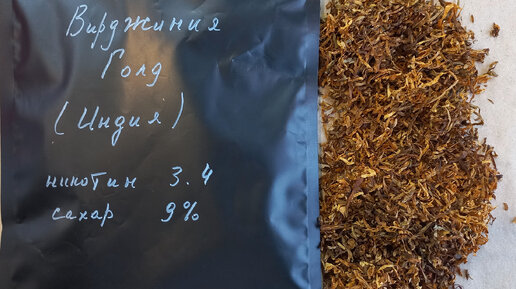 Вирджиния
Голд
(Индия)
никотин 3.4
сахар 9%